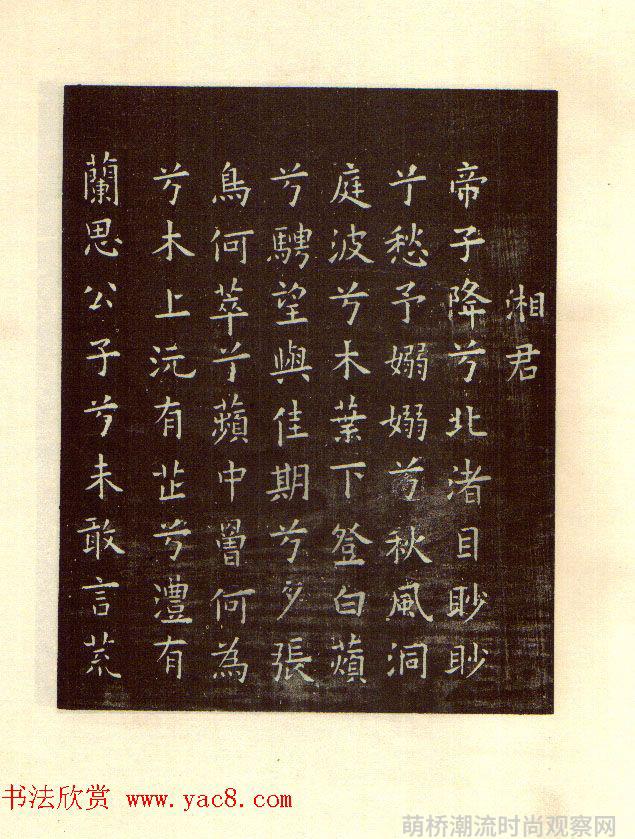 湘君
帝子降兮北渚目眇眇
兮愁予嫋嫋兮秋風洞
庭波兮木葉下登白蘋
兮騁望與佳期兮夕張
鳥何萃兮蘋中罾何為
兮木上沅有芷兮澧有
蘭思公子兮未敢言荒
书法欣赏 www.yac8.com
萌桥潮流时尚观察网